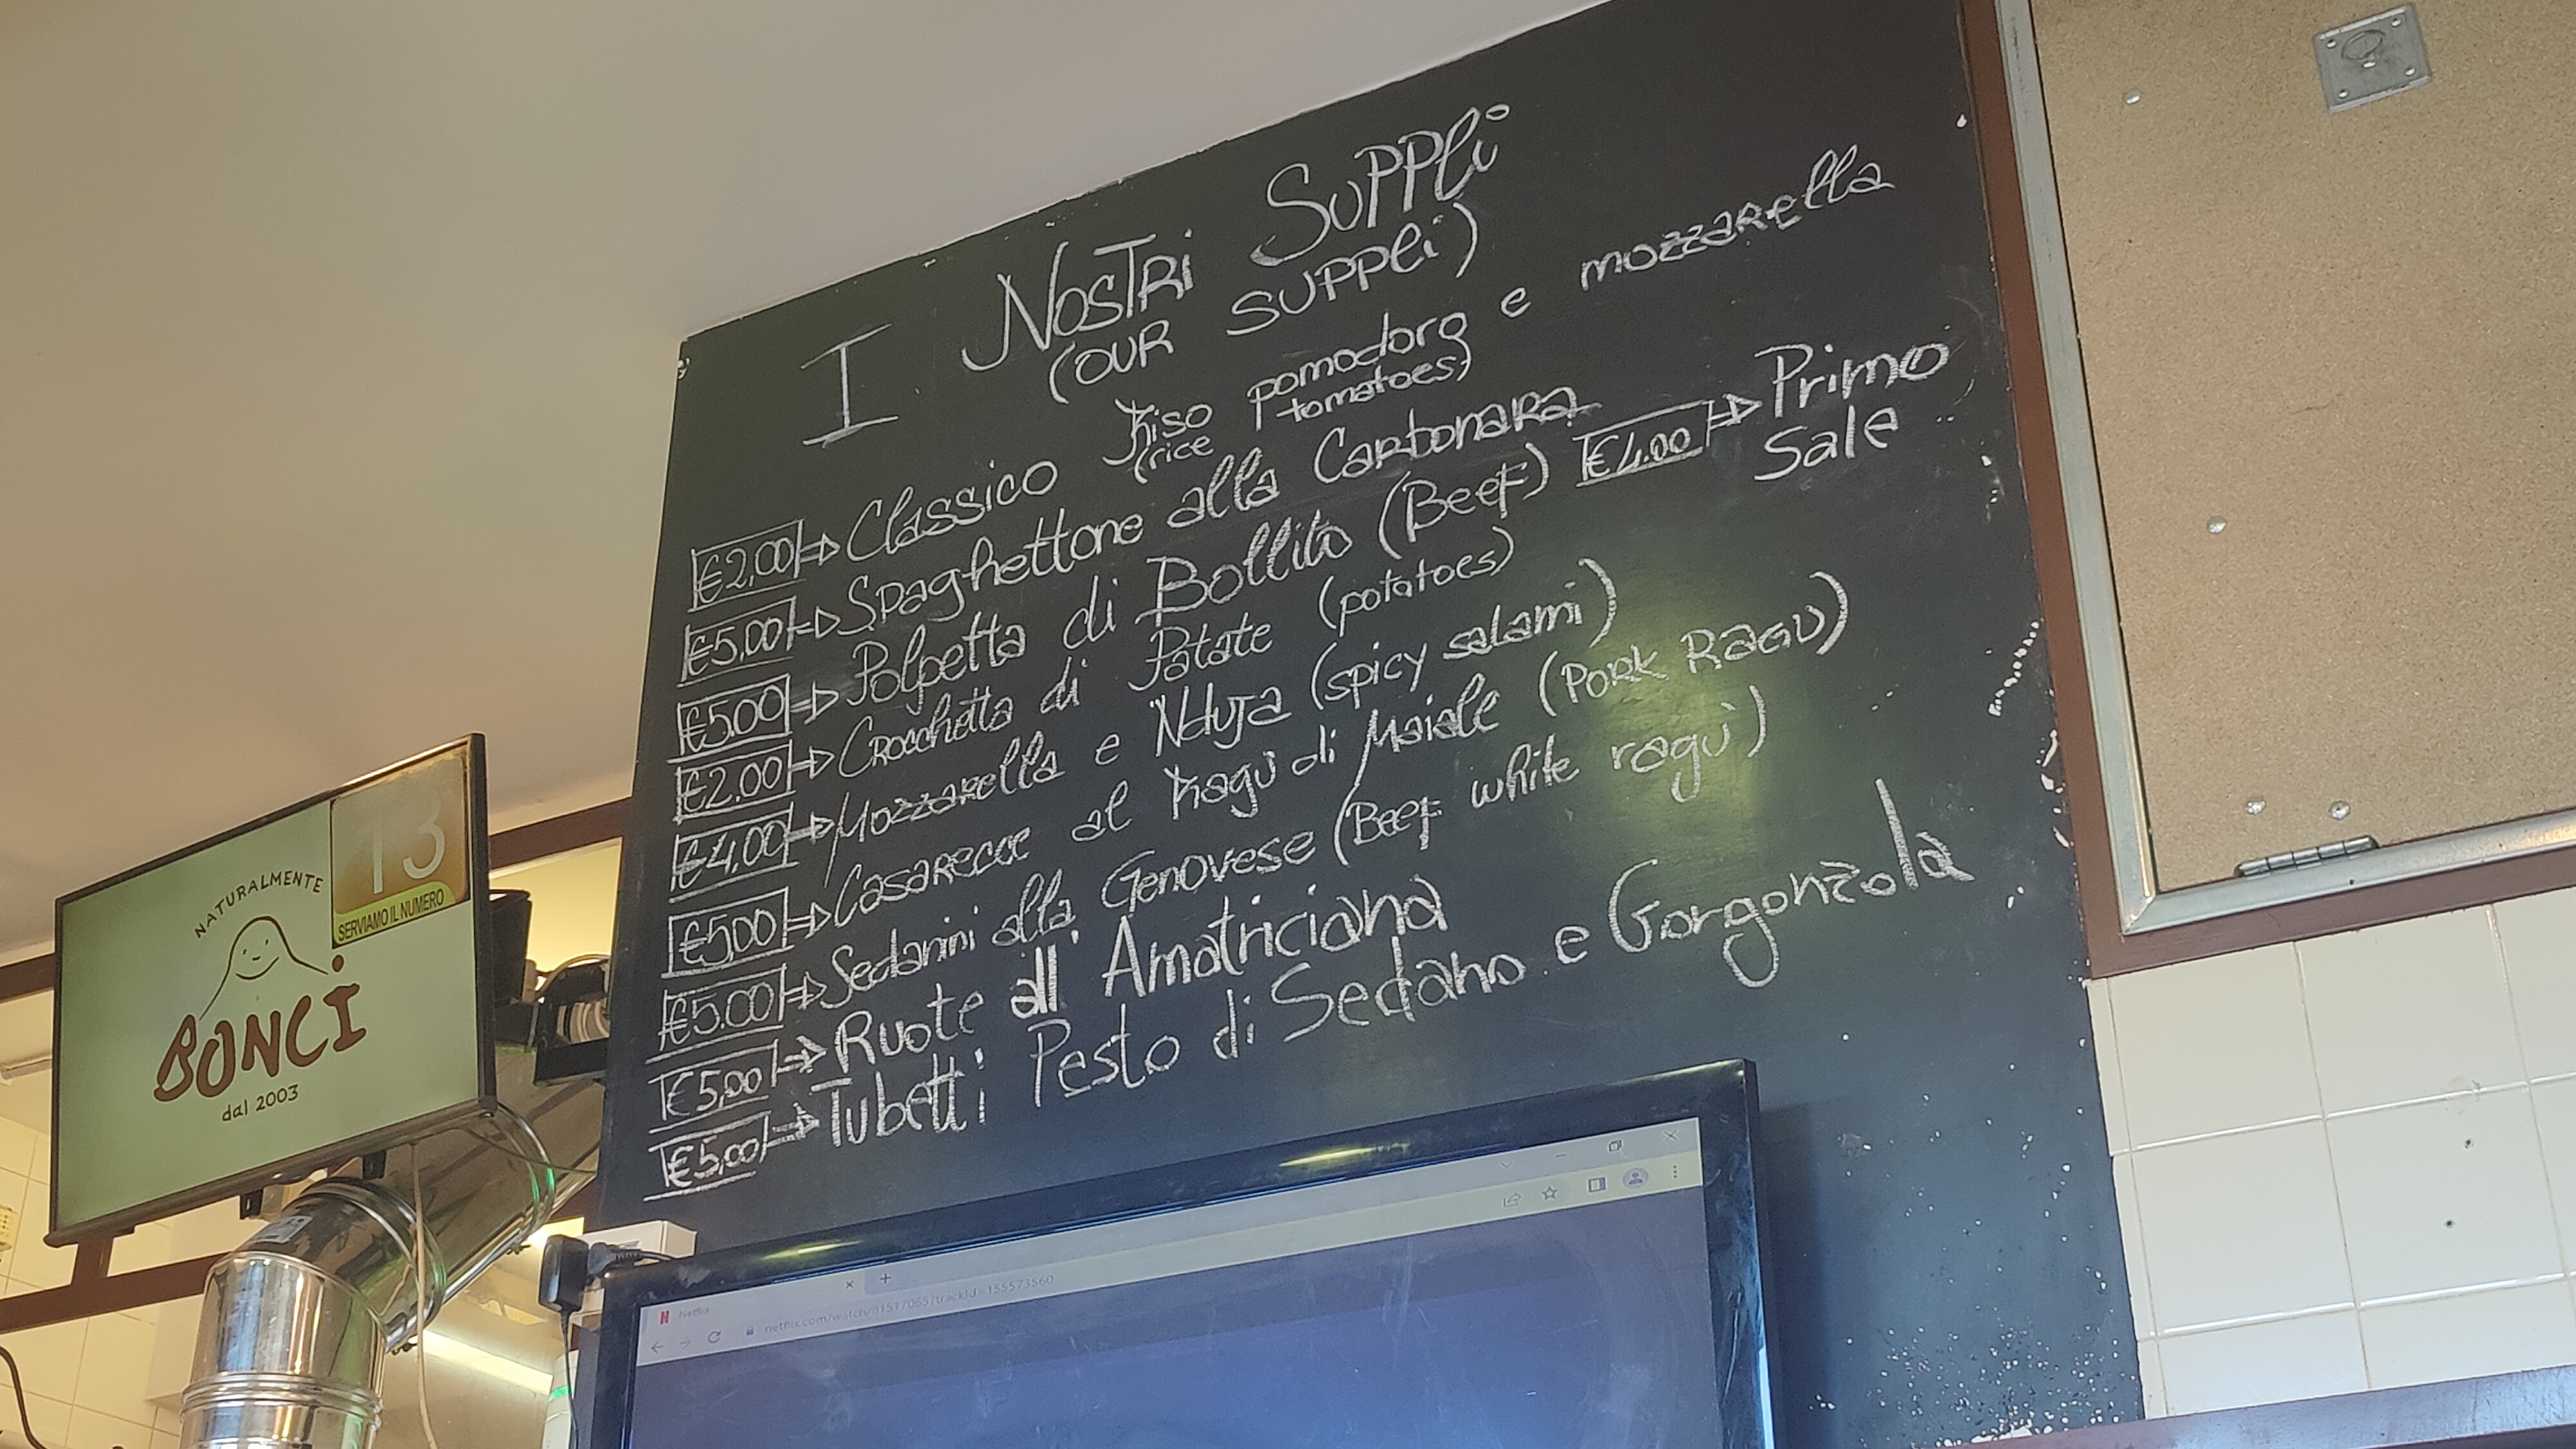 I NOSTRI SUPPLI
(OUR SUPPLI)
€2,00 ⇒ Classico Riso pomodoro e mozzarella
(rice tomatoes)
€5,00 ⇒ Spaghettone alla Carbonara
€5.00 ⇒ Polpetta di Bollito (Beef) €4.00 ⇒ Primo Sale
€2.00 ⇒ Crocchetta di Patate (potatoes)
€4,00 ⇒ Mozzarella e Nduja (spicy salami)
€5,00 ⇒ Casarecce al Ragù di Maiale (Pork Ragù)
€5.00 ⇒ Sedanini alla Genovese (Beef white ragù)
€5,00 ⇒ Ruote all' Amatriciana
€5,00 ⇒ Tubetti Pesto di Sedano e Gorgonzola
NATURALMENTE
BONCI
dal 2003
13
SERVIAMO IL NUMERO
Netflix
netflix.com/watch/81517065?trackId=155573560